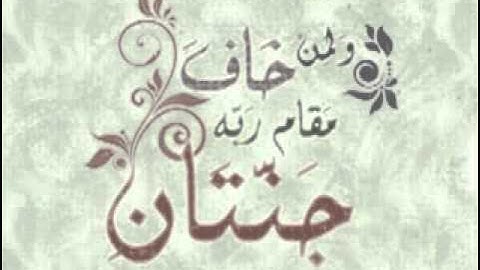 ولمن خافَ
مَقام رَبّه
جَنّتَانِ